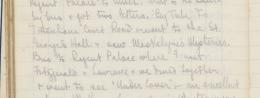 Regent Palace to
by bus & got two letters. By Tube to
Tottenham Court Road & went to the St.
George's Hall & saw Maskelyne's Mysteries.
Bus to Regent Palace where I met
Fitzgerald & Lawrence & we dined together
& went to see "Under Cover" - an excellent